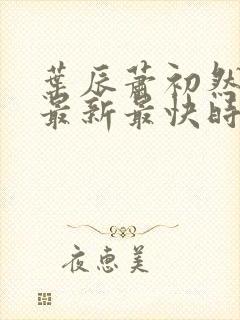 葉辰蕭初然
最新最快時
夜恵美